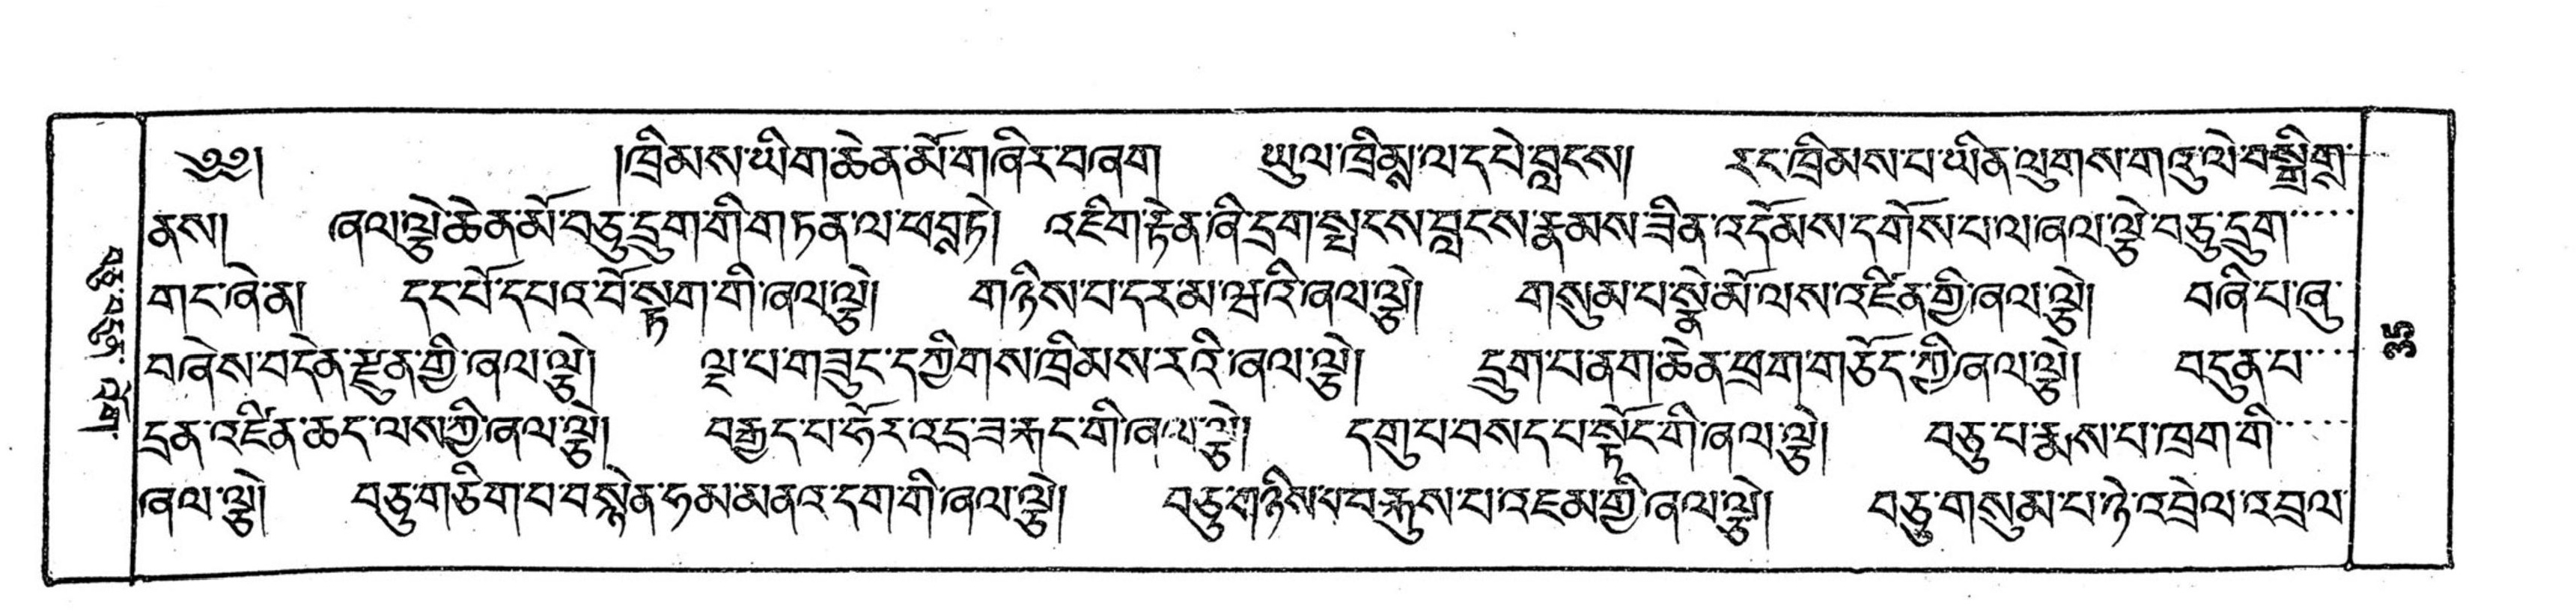 ༄༅། །ཁྲིམས་ཡིག་ཆེན་མོ་གཞིར་བཞག ཡུལ་ཁྲིམྶ་ལ་དཔེ་བླངས། རང་ཁྲིམས་པ་ཡིན་ལུགས་གཞུ་ལེ་བསྒྲིགྶ་
ནས། ཞལ་ལྕེ་ཆེན་མོ་བཅུ་དྲུག་གི་གཏན་ལ་ཕབྶཏེ། འཇིག་རྟེན་ཞི་དྲག་སྤངས་བླངས་རྣམས་ཟིན་འདོམས་དགོས་པ་ལ་ཞལ་ལྕེ་བཅུ་དྲུག་
གང་ཞེ་ན། དང་པོ་དཔའ་བོ་སྟག་གི་ཞལ་ལྕེ། གཉིས་པ་དར་མ་ཝ་འི་ཞལ་ལྕེ། གསུམ་པ་སྣེ་མོ་ལས་འཛིན་གྱི་ཞལ་ལྕེ། བཞི་པ་ཞུ་
བཞེས་བདེན་རྫུན་གྱི་ཞལ་ལྕེ། ལྔ་པ་གཟུང་དཀྱིགས་ཁྲིམས་རའི་ཞལ་ལྕེ། དྲུག་པ་ནག་ཆེན་ཕྲག་གཅོད་ཀྱི་ཞལ་ལྕེ། བདུན་པ་
དྲན་འཛིན་ཆད་ལས་ཀྱི་ཞལ་ལྕེ། བརྒྱད་པ་ཧོར་འདྲ་ཟ་རྐང་གི་ཞལ་ལྕེ། དགུ་པ་བསད་པ་སྟོང་གི་ཞལ་ལྕེ། བཅུ་པ་རྨས་པ་ཁྲག་གི་
ཞལ་ལྕེ། བཅུ་གཅིག་པ་བསྙེན་ཧམ་མནའ་དག་གི་ཞལ་ལྕེ། བཅུ་གཉིས་པ་བརྐུས་པ་འཇམ་གྱི་ཞལ་ལྕེ། བཅུ་གསུམ་པ་ཉེ་འབྲེལ་འབྲལ་